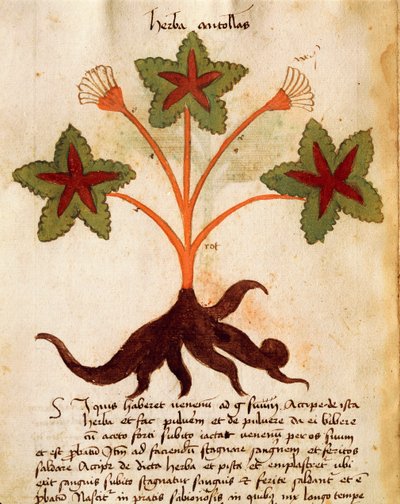 herba antollas
rot
Si quis haberet venenū ad g Accipe de ista
herba et fac pulvēm et de pulvere da ei bibere
cū aceto forti subito iactat venenū per os suum
et est pbatū Itm ad faciendū stagnare sanguinem et feritos
saldare Accipe de dicta herba et pista et emplastret ubi
exit sanguis subito stagnatur sanguis et ferite saldant et ē
pbatū Nascit in pratis sabionosis in quibus longo tempe